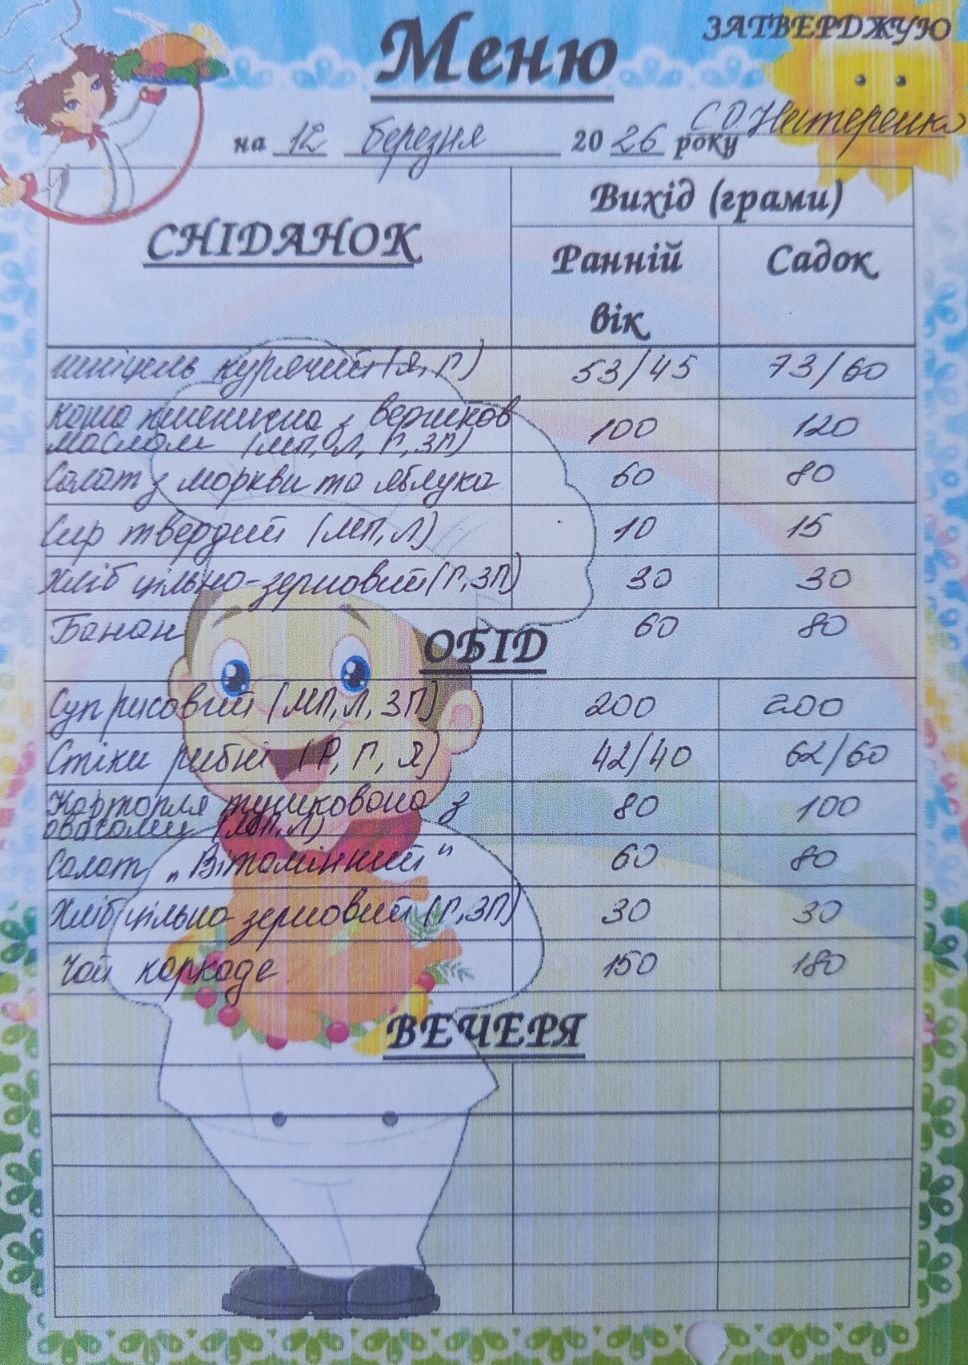 Меню
ЗАТВЕРДЖУЮ
С О Нестеренко
на 12 березня 2026 року
СНІДАНОК
Вихід (грами)
Ранній вік
Садок
шніцель курячий (Я, Г) 53/45 73/60
каша пшенична з вершков
маслом (МП, Л, Г, ЗП) 100 120
Салат з моркви та яблука 60 80
Сир твердий (МП, Л) 10 15
Хліб цільно-зерновий (Г, ЗП) 30 30
Банан 60 80
ОБІД
Суп рисовий (МП, Л, ЗП) 200 200
Стіки рибні (Р, Г, Я) 42/40 62/60
Картопля тушкована з
овочами (МП, Л) 80 100
Салат „Вітамінний" 60 80
Хліб цільно-зерновий (Г, ЗП) 30 30
Чай каркаде 150 180
ВЕЧЕРЯ